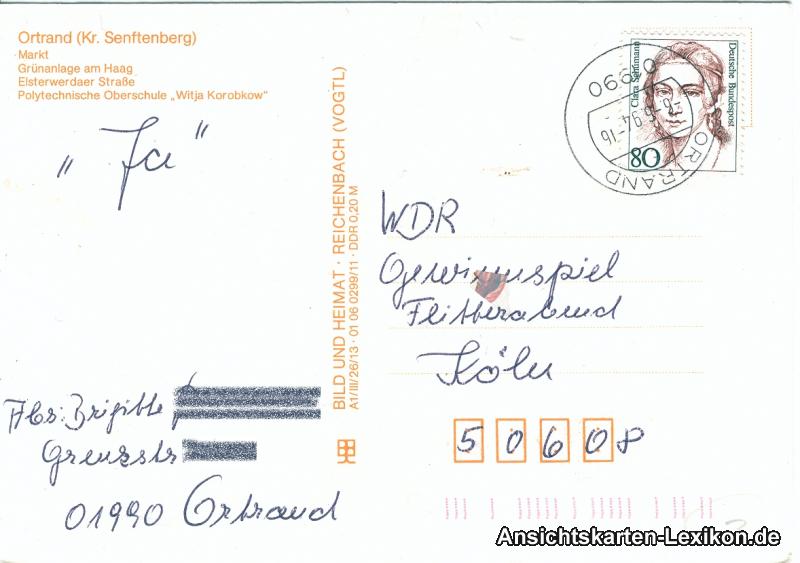 Ortrand (Kr. Senftenberg)
Markt
Grünanlage am Haag
Elsterwerdaer Straße
Polytechnische Oberschule „Witja Korobkow“
„Ja“
BILD UND HEIMAT · REICHENBACH (VOGTL)
A1/III/26/13 · 01 06 0299/11 · DDR 0,20 M
Clara Schumann
Deutsche Bundespost
80
01990
-8.-6.94.-16
ORTRAND
WDR
Gewinnspiel
Flitterabend
Köln
50608
Abs: Brigitte
Grenzstr
01990 Ortrand
Ansichtskarten-Lexikon.de